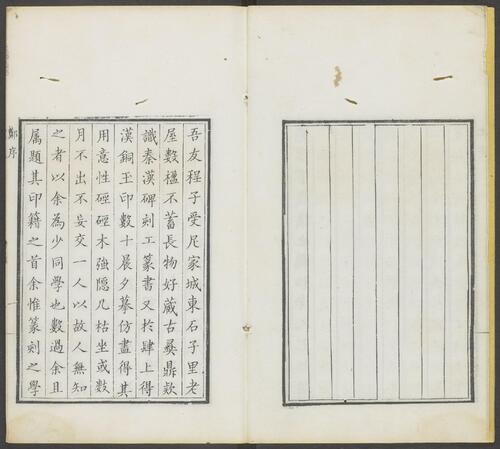 吾友程子受尼家城東石子里老
屋數楹不蓄長物好藏古彝鼎款
識秦漢碑刻工篆書又於肆上得
漢銅玉印數十晨夕摹仿盡得其
用意性硜硜木強隱几枯坐或數
月不出不妄交一人以故人無知
之者以余為少同學也數過余且
属題其印籍之首余惟篆刻之學
鄭序
一